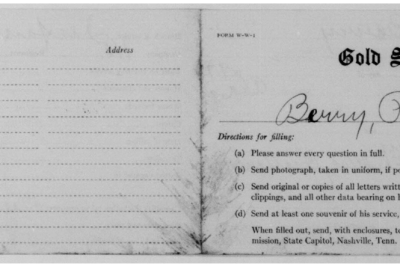 Address
FORM W-W-1
Gold S
Berry,
Directions for filling:
(a) Please answer every question in full.
(b) Send photograph, taken in uniform, if po
(c) Send original or copies of all letters writt
clippings, and all other data bearing on h
(d) Send at least one souvenir of his service,
When filled out, send, with enclosures, to
mission, State Capitol, Nashville, Tenn.